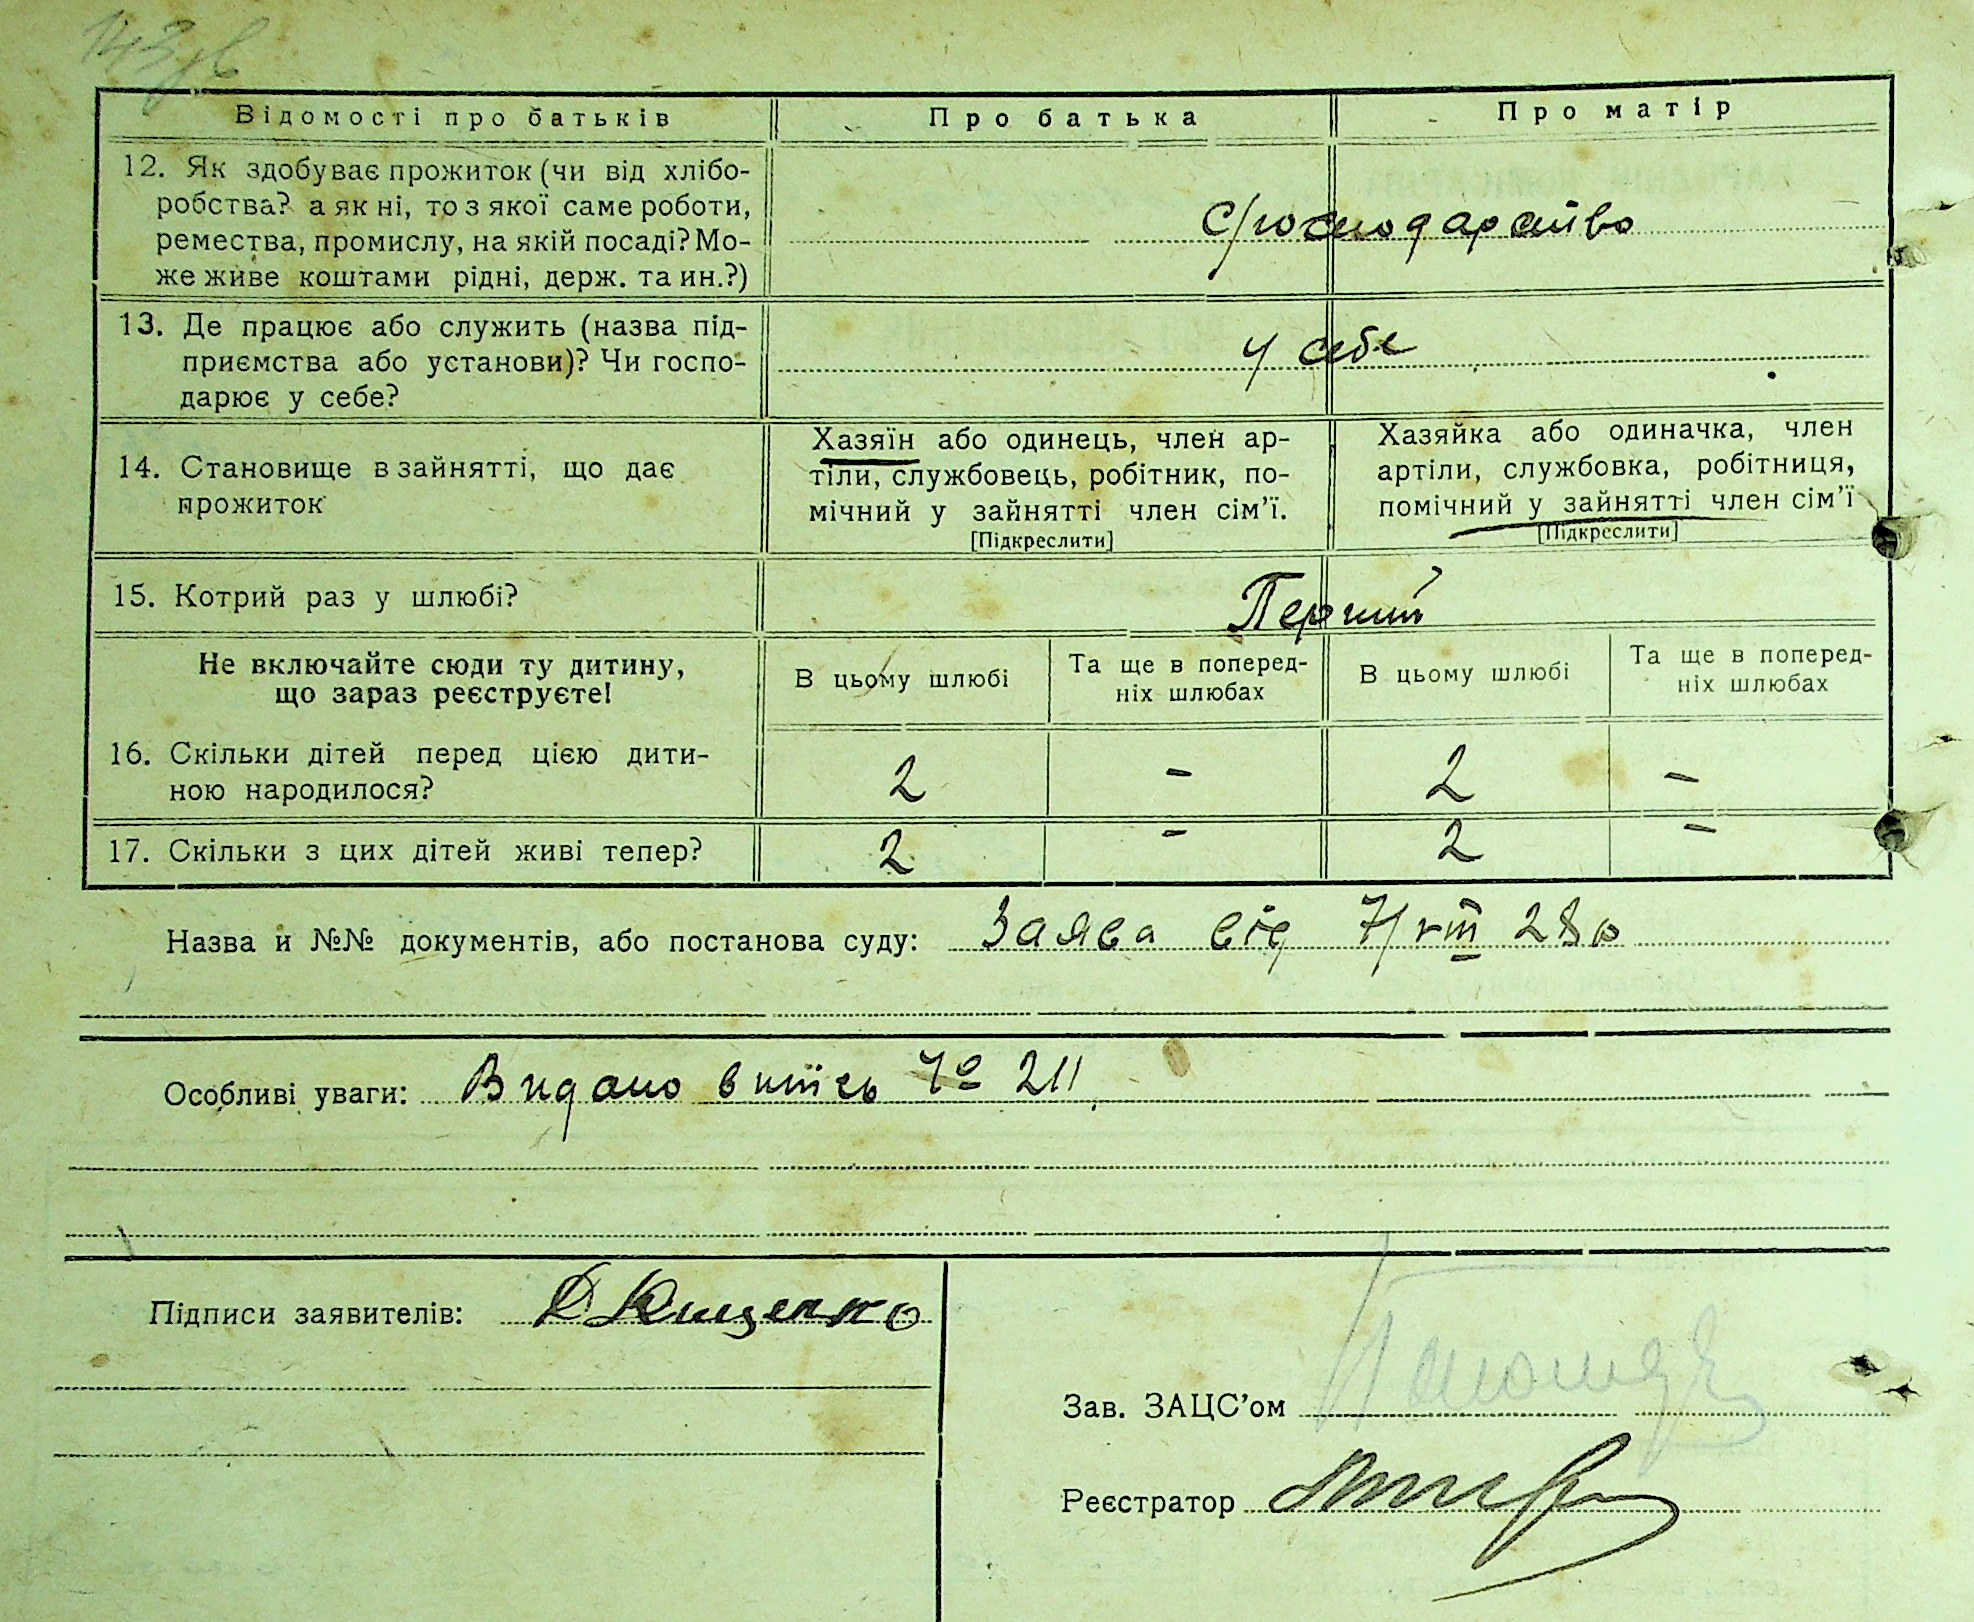 Відомості про батьків
Про батька
Про матір
12. Як здобуває прожиток (чи від хлібо-
робства? а як ні, то з якої саме роботи,
ремества, промислу, на якій посаді? Мо-
же живе коштами рідні, держ. та ин.?)
с/господарство
13. Де працює або служить (назва під-
приємства або установи)? Чи госпо-
дарює у себе?
у себе
14. Становище в зайнятті, що дає
прожиток
Хазяїн або одинець, член ар-
тіли, службовець, робітник, по-
мічний у зайнятті член сім'ї.
[Підкреслити]
Хазяйка або одиначка, член
артіли, службовка, робітниця,
помічний у зайнятті член сім'ї
[Підкреслити]
15. Котрий раз у шлюбі?
Перший
Не включайте сюди ту дитину,
що зараз реєструєте!
В цьому шлюбі
Та ще в поперед-
ніх шлюбах
В цьому шлюбі
Та ще в поперед-
ніх шлюбах
16. Скільки дітей перед цією дити-
ною народилося?
2 - 2 -
17. Скільки з цих дітей живі тепер?
2 - 2 -
Назва й №№ документів, або постанова суду: Заява від 7/VIII 28 р
Особливі уваги: Видано витсь № 211
Підписи заявителів: Д Кищенко
Зав. ЗАЦС'ом
Реєстратор